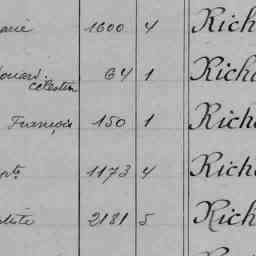 1600 4 Rich
Célestin 64 1 Richa
François 150 1 Richa
1173 4 Richa
2181 5 Rich